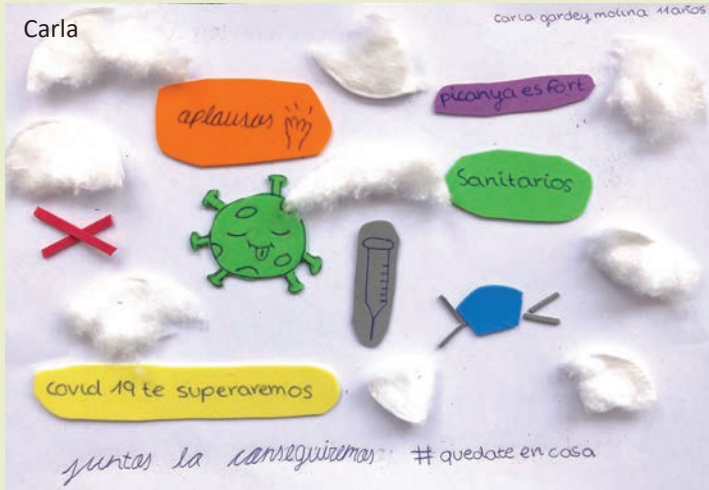 Carla
carla gardey molina 11 años
aplausos
picanya es fort
Sanitarios
covid 19 te superaremos
juntos lo conseguiremos # quedate en casa